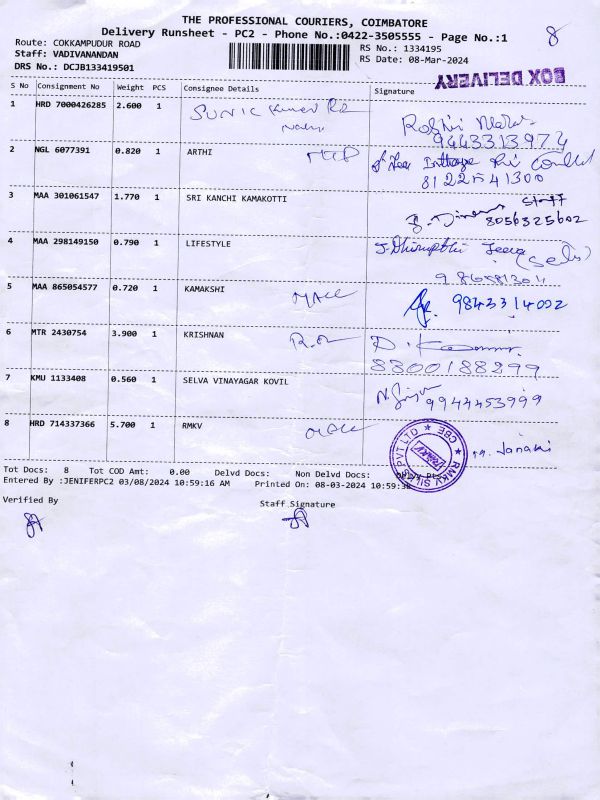 THE PROFESSIONAL COURIERS, COIMBATORE
Delivery Runsheet - PC2 - Phone No.:0422-3505555 - Page No.:1
8
Route: COKKAMPUDUR ROAD
RS No.: 1334195
Staff: VADIVANANDAN
RS Date: 08-Mar-2024
DRS No.: DCJB133419501
BOX DELIVERY
S No Consignment No Weight PCS Consignee Details Signature
1 HRD 7000426285 2.600 1 Sunil Kumar
9443313974
2 NGL 6077391 0.820 1 ARTHI
8122541300
3 MAA 301061547 1.770 1 SRI KANCHI KAMAKOTTI
Staff
8056325602
4 MAA 298149150 0.790 1 LIFESTYLE
5 MAA 865054577 0.720 1 KAMAKSHI
9843314002
6 MTR 2430754 3.900 1 KRISHNAN
8300188299
7 KMU 1133408 0.560 1 SELVA VINAYAGAR KOVIL
9944453999
8 HRD 714337366 5.700 1 RMKV
RMKV SILKS PVT LTD ★ CBE ★
Janaki
Tot Docs: 8 Tot COD Amt: 0.00 Delvd Docs: Non Delvd Docs:
Entered By :JENIFERPC2 03/08/2024 10:59:16 AM Printed On: 08-03-2024 10:59:
Verified By
Staff Signature